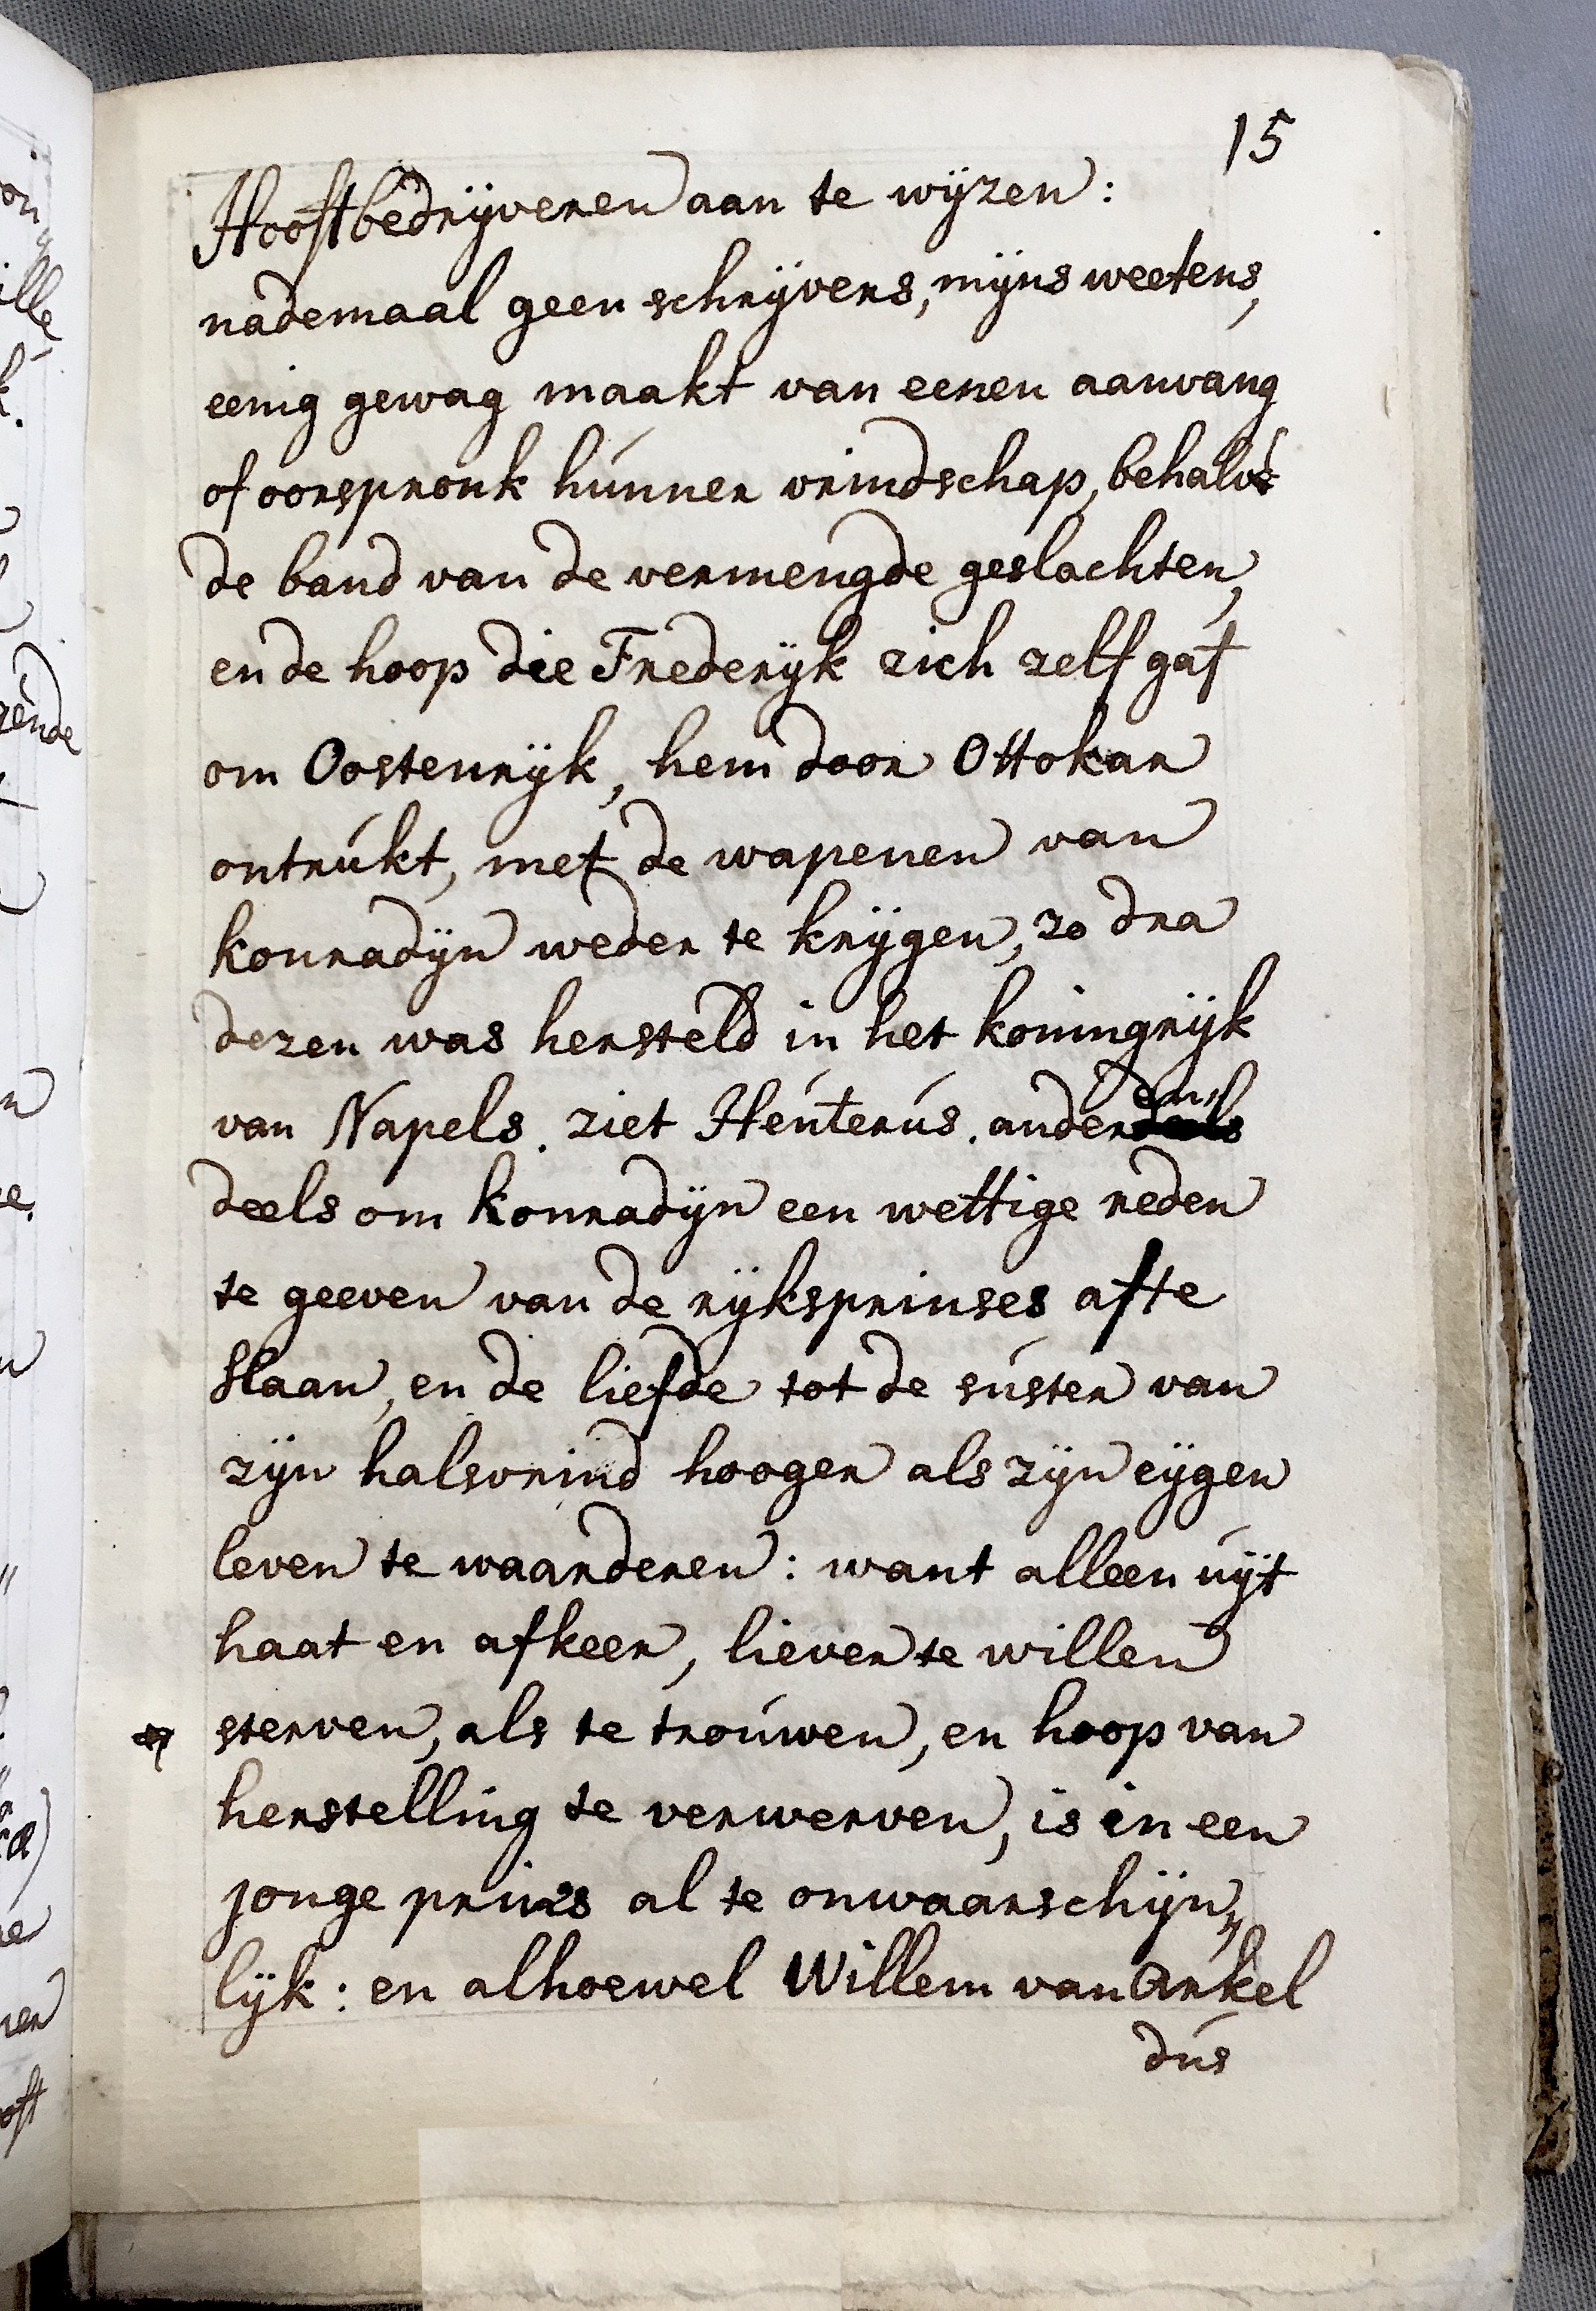 15
Hooftbedrijveren aan te wijzen:
nademaal geen schrijvers, mijns weetens,
eenig gewag maakt van eenen aanvang
of oorspronk húnner vrindschap, behalve
de band van de vermengde geslachten,
en de hoop die Frederijk zich zelf gaf
om Oostenrijk, hem door Ottokar
ontrúkt, met de wapenen van
konradijn weder te krijgen, zo dra
dezen was hersteld in het koningrijk
van Napels. ziet Heúterús. anderdeels
deels om konradijn een wettige reden
te geeven van de rijksprinses af te
slaan, en de liefde tot de súster van
zijn halsvrind hooger als zijn eijgen
leven te waarderen: want alleen úijt
haat en afkeer, liever te willen
sterven, als te troúwen, en hoop van
herstelling te verwerven, is in een
jonge prins al te onwaarschijn„
lijk: en alhoewel Willem van Arkel
dús